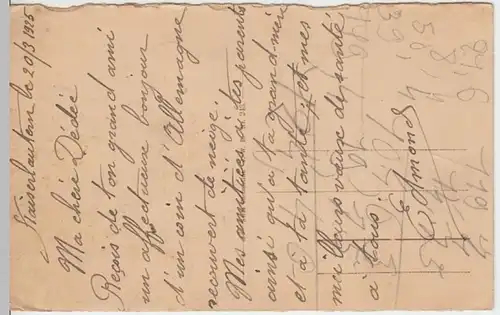 Kaiserlautern le 20/3 1925
Ma chère Dédée
Reçois de ton grand ami
un affectueux bonjour
d'un coin d'Allemagne
recouvert de neige.
Mes amitiées à tes parents
ainsi qu'à ta grand-mère
et à ta tante et mes
meilleurs vœux de santé
à tous
Edmond